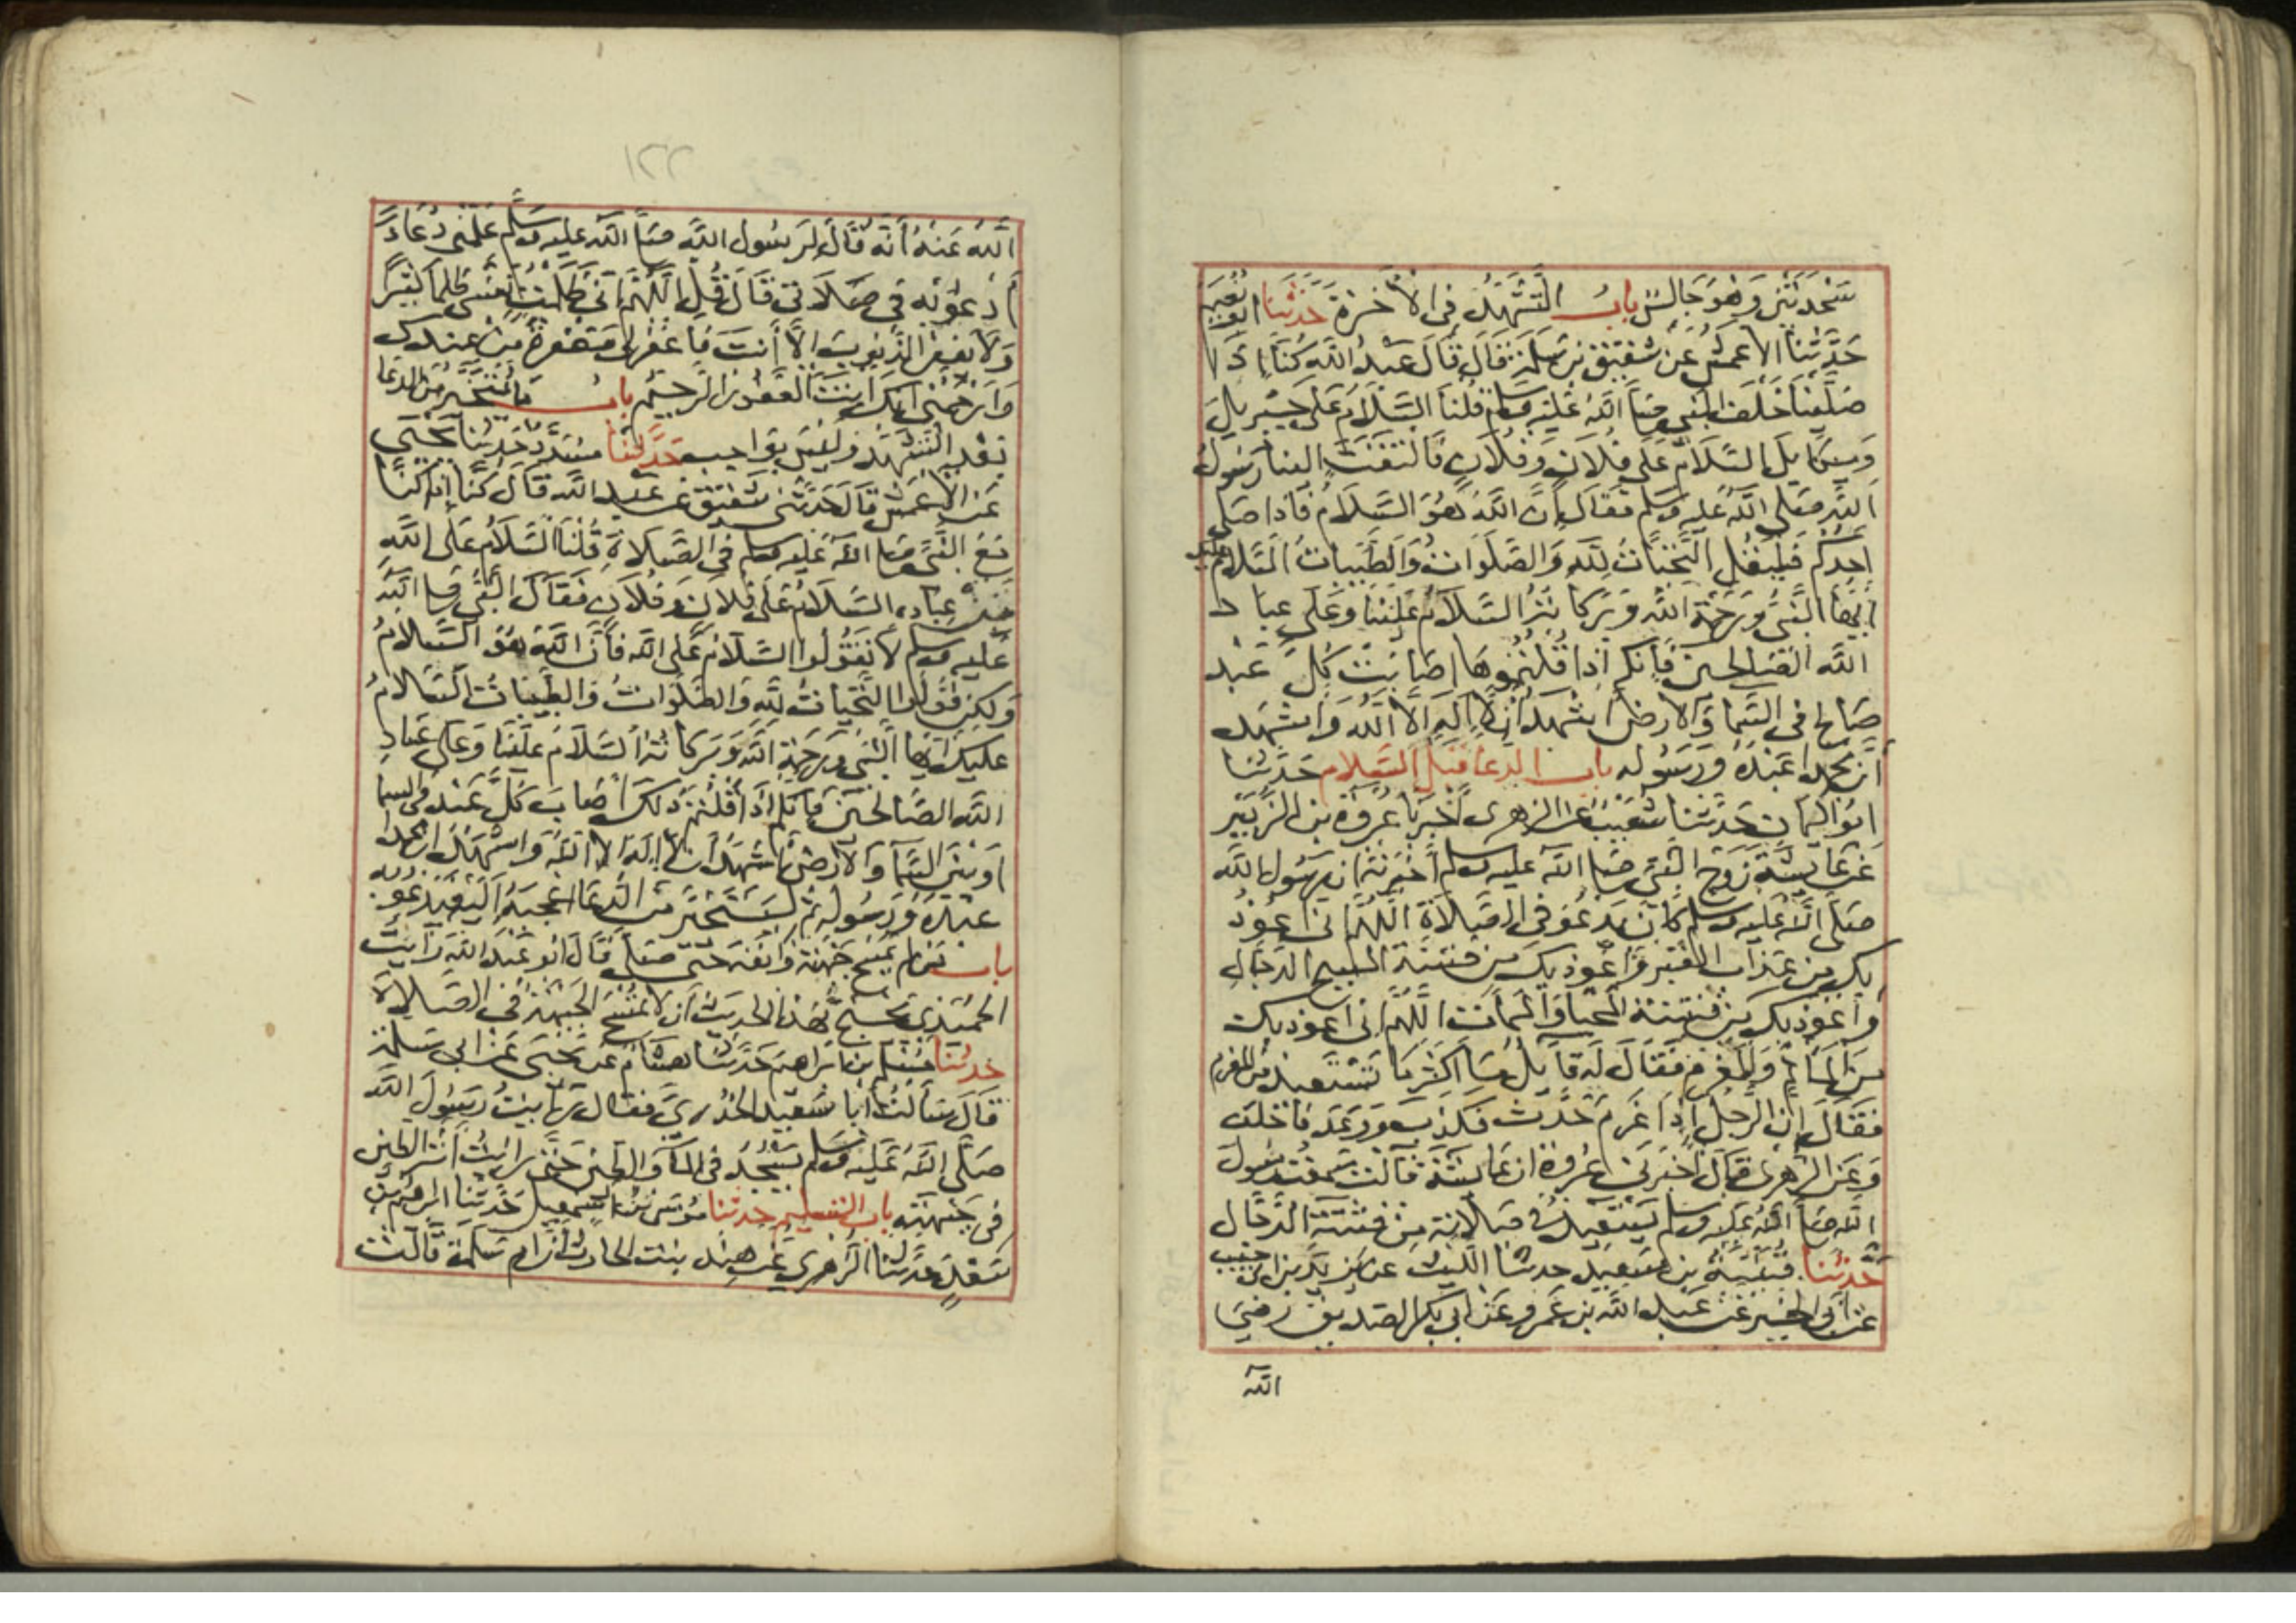 سجدتين وهو جالس باب التشهد في الاخرة حدثنا ابو نعيم
حدثنا الاعمش عن شقيق بن سلمة قال قال عبد الله كنا اذا
صلينا خلف النبي صلى الله عليه وسلم قلنا السلام على جبريل
وميكايل السلام على فلان وفلان فالتفت الينا رسول
الله صلى الله عليه وسلم فقال ان الله هو السلام فاذا صلى
احدكم فليقل التحيات لله والصلوات والطيبات السلام عليك
ايها النبي ورحمة الله وبركاته السلام علينا وعلى عباد
الله الصالحين فانكم اذا قلتموها اصابت كل عبد
صالح في السما والارض اشهد ان لا اله الا الله واشهد
ان محمدا عبده ورسوله باب الدعا قبل السلام حدثنا
ابو اليمان حدثنا شعيب عن الزهري اخبرنا عروة بن الزبير
عن عايشة زوج النبي صلى الله عليه وسلم اخبرته ان رسول الله
صلى الله عليه وسلم كان يدعو في الصلاة اللهم اني اعوذ
بك من عذاب القبر واعوذ بك من فتنة المسيح الدجال
واعوذ بك من فتنة المحيا والممات اللهم اني اعوذ بك
من الماثم والمغرم فقال له قايل ما اكثر ما تستعيذ من المغرم
فقال ان الرجل اذا غرم حدث فكذب ووعد فاخلف
وعن الزهري قال اخبرني عروة ان عايشة قالت سمعت رسول
الله صلى الله عليه وسلم يستعيذ في صلاته من فتنة الدجال
حدثنا قتيبة بن سعيد حدثنا الليث عن يزيد بن ابي حبيب
عن ابي الخير عن عبد الله بن عمرو عن ابي بكر الصديق رضي
الله
١٢٢
الله عنه انه قال لرسول الله صلى الله عليه وسلم علمني دعاء
ادعو به في صلاتي قال قل اللهم اني ظلمت نفسي ظلما كثيرا
ولا يغفر الذنوب الا انت فاغفر لي مغفرة من عندك
وارحمني انك انت الغفور الرحيم باب ما يتخير من الدعا
بعد التشهد وليس بواجب حدثنا مسدد حدثنا يحيى
عن الاعمش قال حدثني شقيق عن عبد الله قال كنا اذا كنا
مع النبي صلى الله عليه وسلم في الصلاة قلنا السلام على الله
من عباده السلام على فلان وفلان فقال النبي صلى الله
عليه وسلم لا تقولوا السلام على الله فان الله هو السلام
ولكن قولوا التحيات لله والصلوات والطيبات السلام
عليك ايها النبي ورحمة الله وبركاته السلام علينا وعلى عباد
الله الصالحين فانكم اذا قلتم ذلك اصاب كل عبد في السما
او بين السما والارض اشهد ان لا اله الا الله واشهد ان محمدا
عبده ورسوله ثم ليتخير من الدعا اعجبه اليه فيدعو به
باب من لم يمسح جبهته وانفه حتى صلى قال ابو عبد الله رايت
الحميدي يحتج بهذا الحديث ان لا يمسح الجبهة في الصلاة
حدثنا مسلم بن ابراهيم حدثنا هشام عن يحيى عن ابي سلمة
قال سالت ابا سعيد الخدري فقال رايت رسول الله
صلى الله عليه وسلم يسجد في الما والطين حتى رايت اثر الطين
في جبهته باب التسليم حدثنا موسى بن اسمعيل حدثنا ابراهيم بن
سعد حدثنا الزهري عن هند بنت الحارث ان ام سلمة قالت